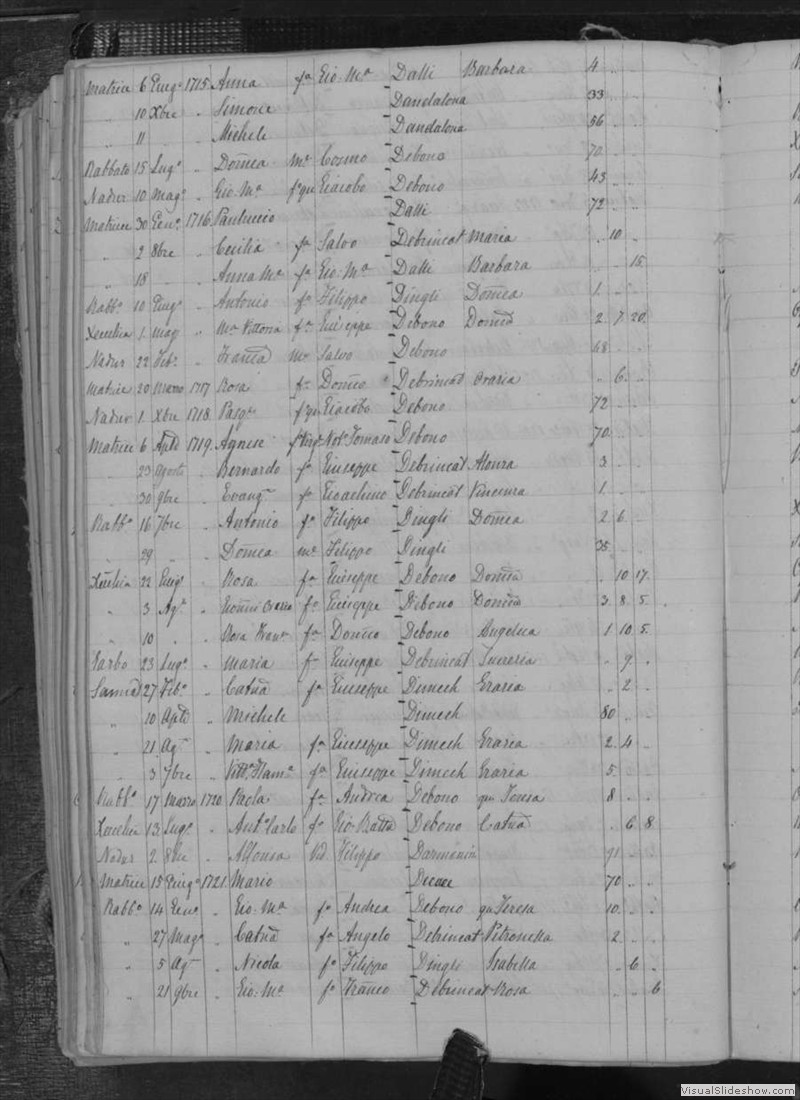 Matrice 6 Giugº 1715 Anna fª Gio: Mª Dalli Barbara 4 " "
" 10 Xbre " Simone Dandalona 33
" 11 " " Michele Dandalona 56
Rabbato 15 Lugº " Domca mº Cosmo Debono 70
Nadur 10 Magº " Gio: Mª fº qu Giacobo Debono 43
Matrice 30 Genº 1716 Dalli 72
" 2 8bre " Cecilia fª Salvo Debrincat Maria " 10 "
" 18 " Anna Mª fª Gio: Mª Dalli Barbara " " 15
Rabbº 10 Giugº " Antonio fº Filippo Dingli Domca 1 " "
Xeuchia 1 Mag " Mª Vittoria fª Giuseppe Debono Domca 2 7 20
Nadur 22 Febº " Franca mº Salvo Debono 48
Matrice 20 Marzo 1717 Rosa fª Domco Debrincat Grazia " 6 "
Nadur 1 Xbre 1718 Pasqª fª qu Giacobo Debono 72
Matrice 6 Aple 1719 Agnese Notº Tomaso Debono 70
" 23 Agosto " Bernardo fº Giuseppe Debrincat Alonza 3 " "
" 30 9bre " Evangª fª Gioachino Debrincat Vincenza 1 " "
Rabbº 16 7bre " Antonio fº Filippo Dingli Domca 2 6 "
" 29 " " Domca mº Filippo Dingli 35
Xeuchia 22 Giugº " Rosa fª Giuseppe Debono Domca " 10 17
" 3 Agº " fª Giuseppe Debono Domca 3 8 5
" 10 " " Rosa Franª fª Domco Debono Angelica 1 10 5
Garbo 23 Lugº " Maria fª Giuseppe Debrincat Lucrezia " 9 "
Sannat 27 Febº " Catna fª Giuseppe Dimech Grazia " 2 "
" 10 Aple " Michele Dimech 80
" 21 Agº " Maria fª Giuseppe Dimech Grazia 2 4 "
" 3 7bre " fª Giuseppe Dimech Grazia 5 " "
Rabbº 17 Marzo 1720 Paola fª Andrea Debono qu Teresa 8 " "
Xeuchia 13 Lugº " Antº Carlo fº Gio: Batta Debono Catna " 6 8
Nadur 2 8bre " Alfonsa Vid Filippo Darmenin 91 " "
Matrice 15 Giugº 1721 Mario 70 " "
Rabbº 14 Genº " Gio: Mª fº Andrea Debono qu Teresa 10 " "
" 27 Magº " Catna fª Angelo Debrincat Petronella 2 " "
" 5 Agº " Nicola fº Filippo Dingli Isabella " 6 "
" 21 9bre " Gio: Mª fº Franco Debrincat Rosa " " 6
VisualSlideshow.com